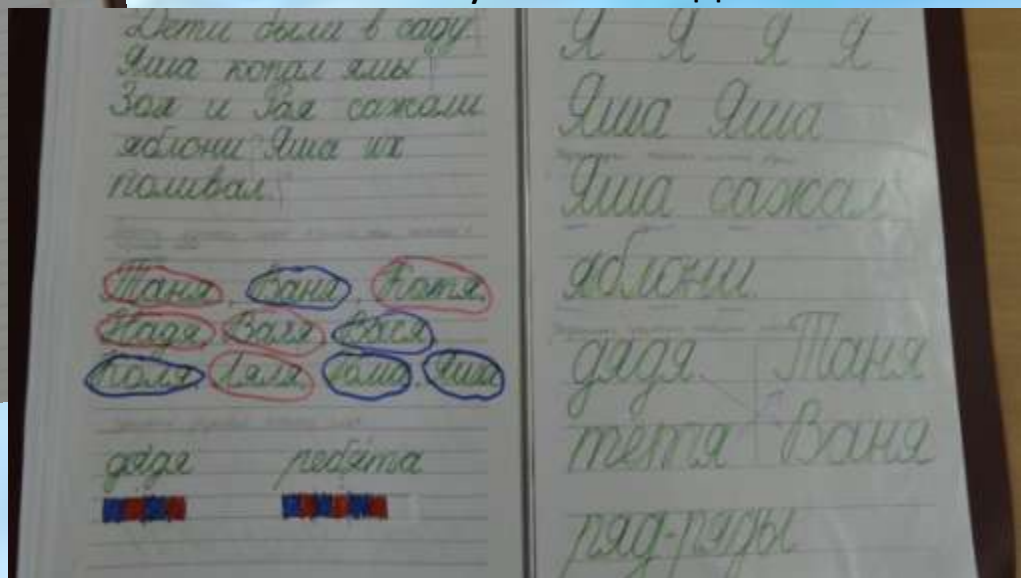 Дети были в саду
Яша копал ямы
Зоя и Рая сажали
яблони Яша их
поливал.
Таня, Ваня, Катя,
Надя Валя Вася
Коля Ляля Толя, Яша
дядя ребята
Я Я Я Я
Яша Яша
Яша сажал
яблони.
дядя. Таня
тётя Ваня
ряд-ряды